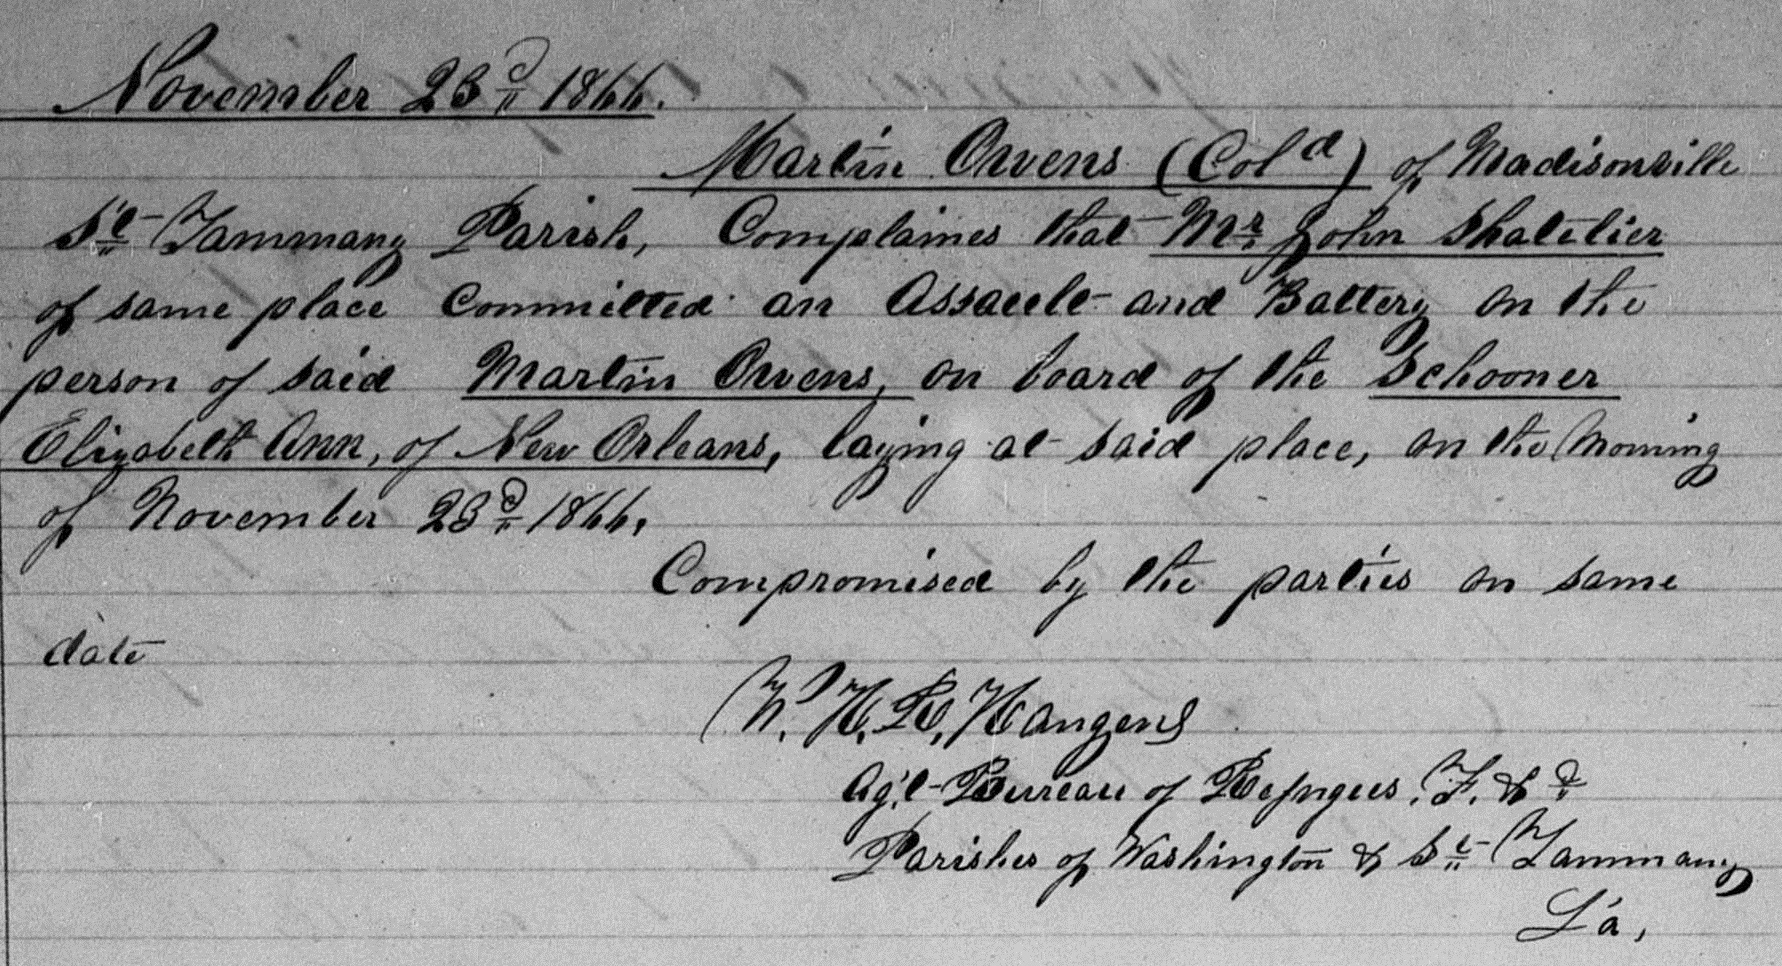 November 23d 1866.
Martin Owens (Cold) of Madisonville
St Tammany Parish, Complaines that Mr John Shatelier
of same place Committed an Assault and Battery on the
person of said Martin Owens, on board of the Schooner
Elizabeth Ann, of New Orleans, laying at said place, on the Morning
of November 23d 1866.
Compromised by the parties on same
date
W. H. R. Hangen
Ag't Bureau of Refugees, F. & d
Parishes of Washington & St Tammany
La,